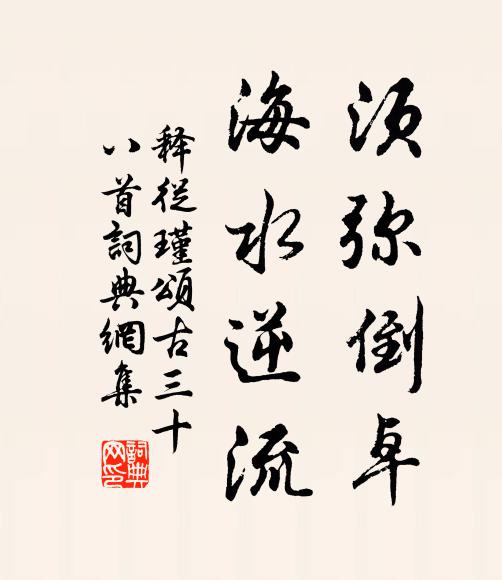 须弥倒卓
海水逆流
释從瑾頌古三十
八首詞典網集
詞典
网印